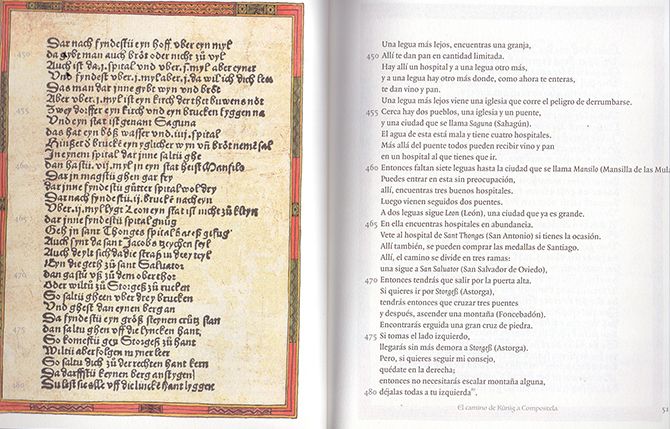 450
460
465
470
475
480
Dar nach fyndestu eyn hoff. vber eyn myl
da gybt man auch bröt oder nicht zů vyl
Auch ist da .j. spital vnd vber .j. myl aber eyner
Vnd fyndest vber .j. myl aber .j. da wil ich dich leren
Das man dar jnne gybt wyn vnd bröt
Aber vber .j. myl ist eyn kirch der thet buwens nöt
Zwey dorffer eyn kirch vnd eyn brucken lyggen na
Vnd eyn stat ist genant Saguna
das hat eyn böß wasser vnd .iiij. spital
Hinder der brucke eyn yglicher wyn vñ bröt nemē sol
Jn eynem spital dar jnne saltu ghe
dan hastu .vij. myl in eyn stat heist Mansilo
Dar in magstu ghen gar fry
dar jnne fyndestu gůtter spital wol dry
Dar nach fyndestu .ij. brucke nach eyn
Vber .ij. myl lygt Leon eyn stat ist nicht zů kleyn
dar jnne fyndestu spital gnůg
Geh in sant Thonges spital
Auch fynt da sant Jacobs tzeychen feyl
Auch deylt sich da die straß in drey teyl
Eyn die geth zů sant Saluator
dan gastu vß zů dem oberthor
Oder wiltu zů Storgeß zů rucken
So saltu gheen vber drey brucken
Vnd ghest dan eynen berg an
Da fyndestu eyn größ steynen crütz stan
dan saltu ghen vff die lyncken hant,
So komestu gen Storgeß zů hant
Wiltu aber folgen myner leer
So saltu dich zů der rechten hant kern
Da darffstu keynen berg anstygen
Du lest sie alle vff die lincke hant lyggen
Una legua más lejos, encuentras una granja,
450 Allí te dan pan en cantidad limitada.
Hay allí un hospital y a una legua otro más,
y a una legua hay otro más donde, como ahora te enteras,
te dan vino y pan.
Una legua más lejos viene una iglesia que corre el peligro de derrumbarse.
455 Cerca hay dos pueblos, una iglesia y un puente,
y una ciudad que se llama Saguna (Sahagún).
El agua de esta está mala y tiene cuatro hospitales.
Más allá del puente todos pueden recibir vino y pan
en un hospital al que tienes que ir.
460 Entonces faltan siete leguas hasta la ciudad que se llama Mansilo (Mansilla de las Mulas)
Puedes entrar en esta sin preocupación,
allí, encuentras tres buenos hospitales.
Luego vienen seguidos dos puentes.
A dos leguas sigue Leon (León), una ciudad que ya es grande.
465 En ella encuentras hospitales en abundancia.
Vete al hospital de Sant Thonges (San Antonio) si tienes la ocasión.
Allí también, se pueden comprar las medallas de Santiago.
Allí, el camino se divide en tres ramas:
una sigue a San Saluator (San Salvador de Oviedo),
470 Entonces tendrás que salir por la puerta alta.
Si quieres ir por Storgeß (Astorga),
tendrás entonces que cruzar tres puentes
y después, ascender una montaña (Foncebadón).
Encontrarás erguida una gran cruz de piedra.
475 Si tomas el lado izquierdo,
llegarás sin más demora a Storgeß (Astorga).
Pero, si quieres seguir mi consejo,
quédate en la derecha;
entonces no necesitarás escalar montaña alguna,
480 déjalas todas a tu izquierda
El camino de Künig a Compostela
51